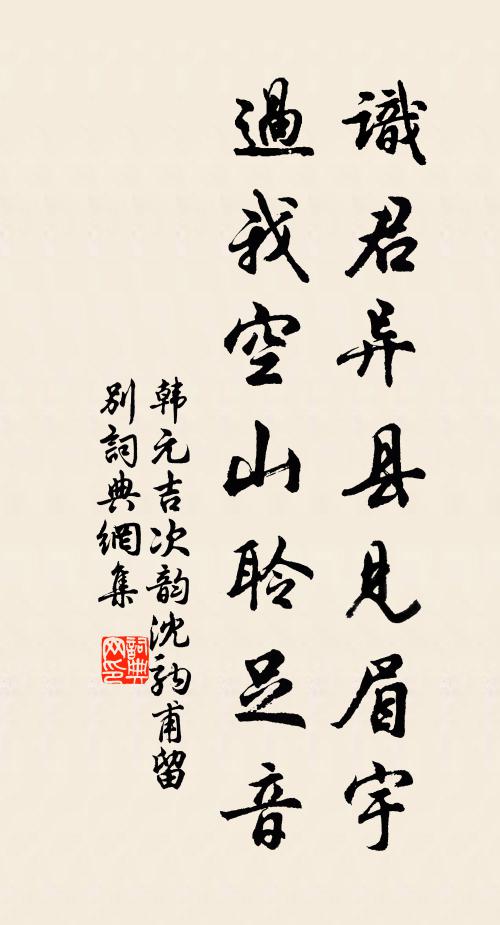 識君异县見眉宇
過我空山聆足音
韩元吉次韵沈駒甫留
别詞典網集
詞典網印